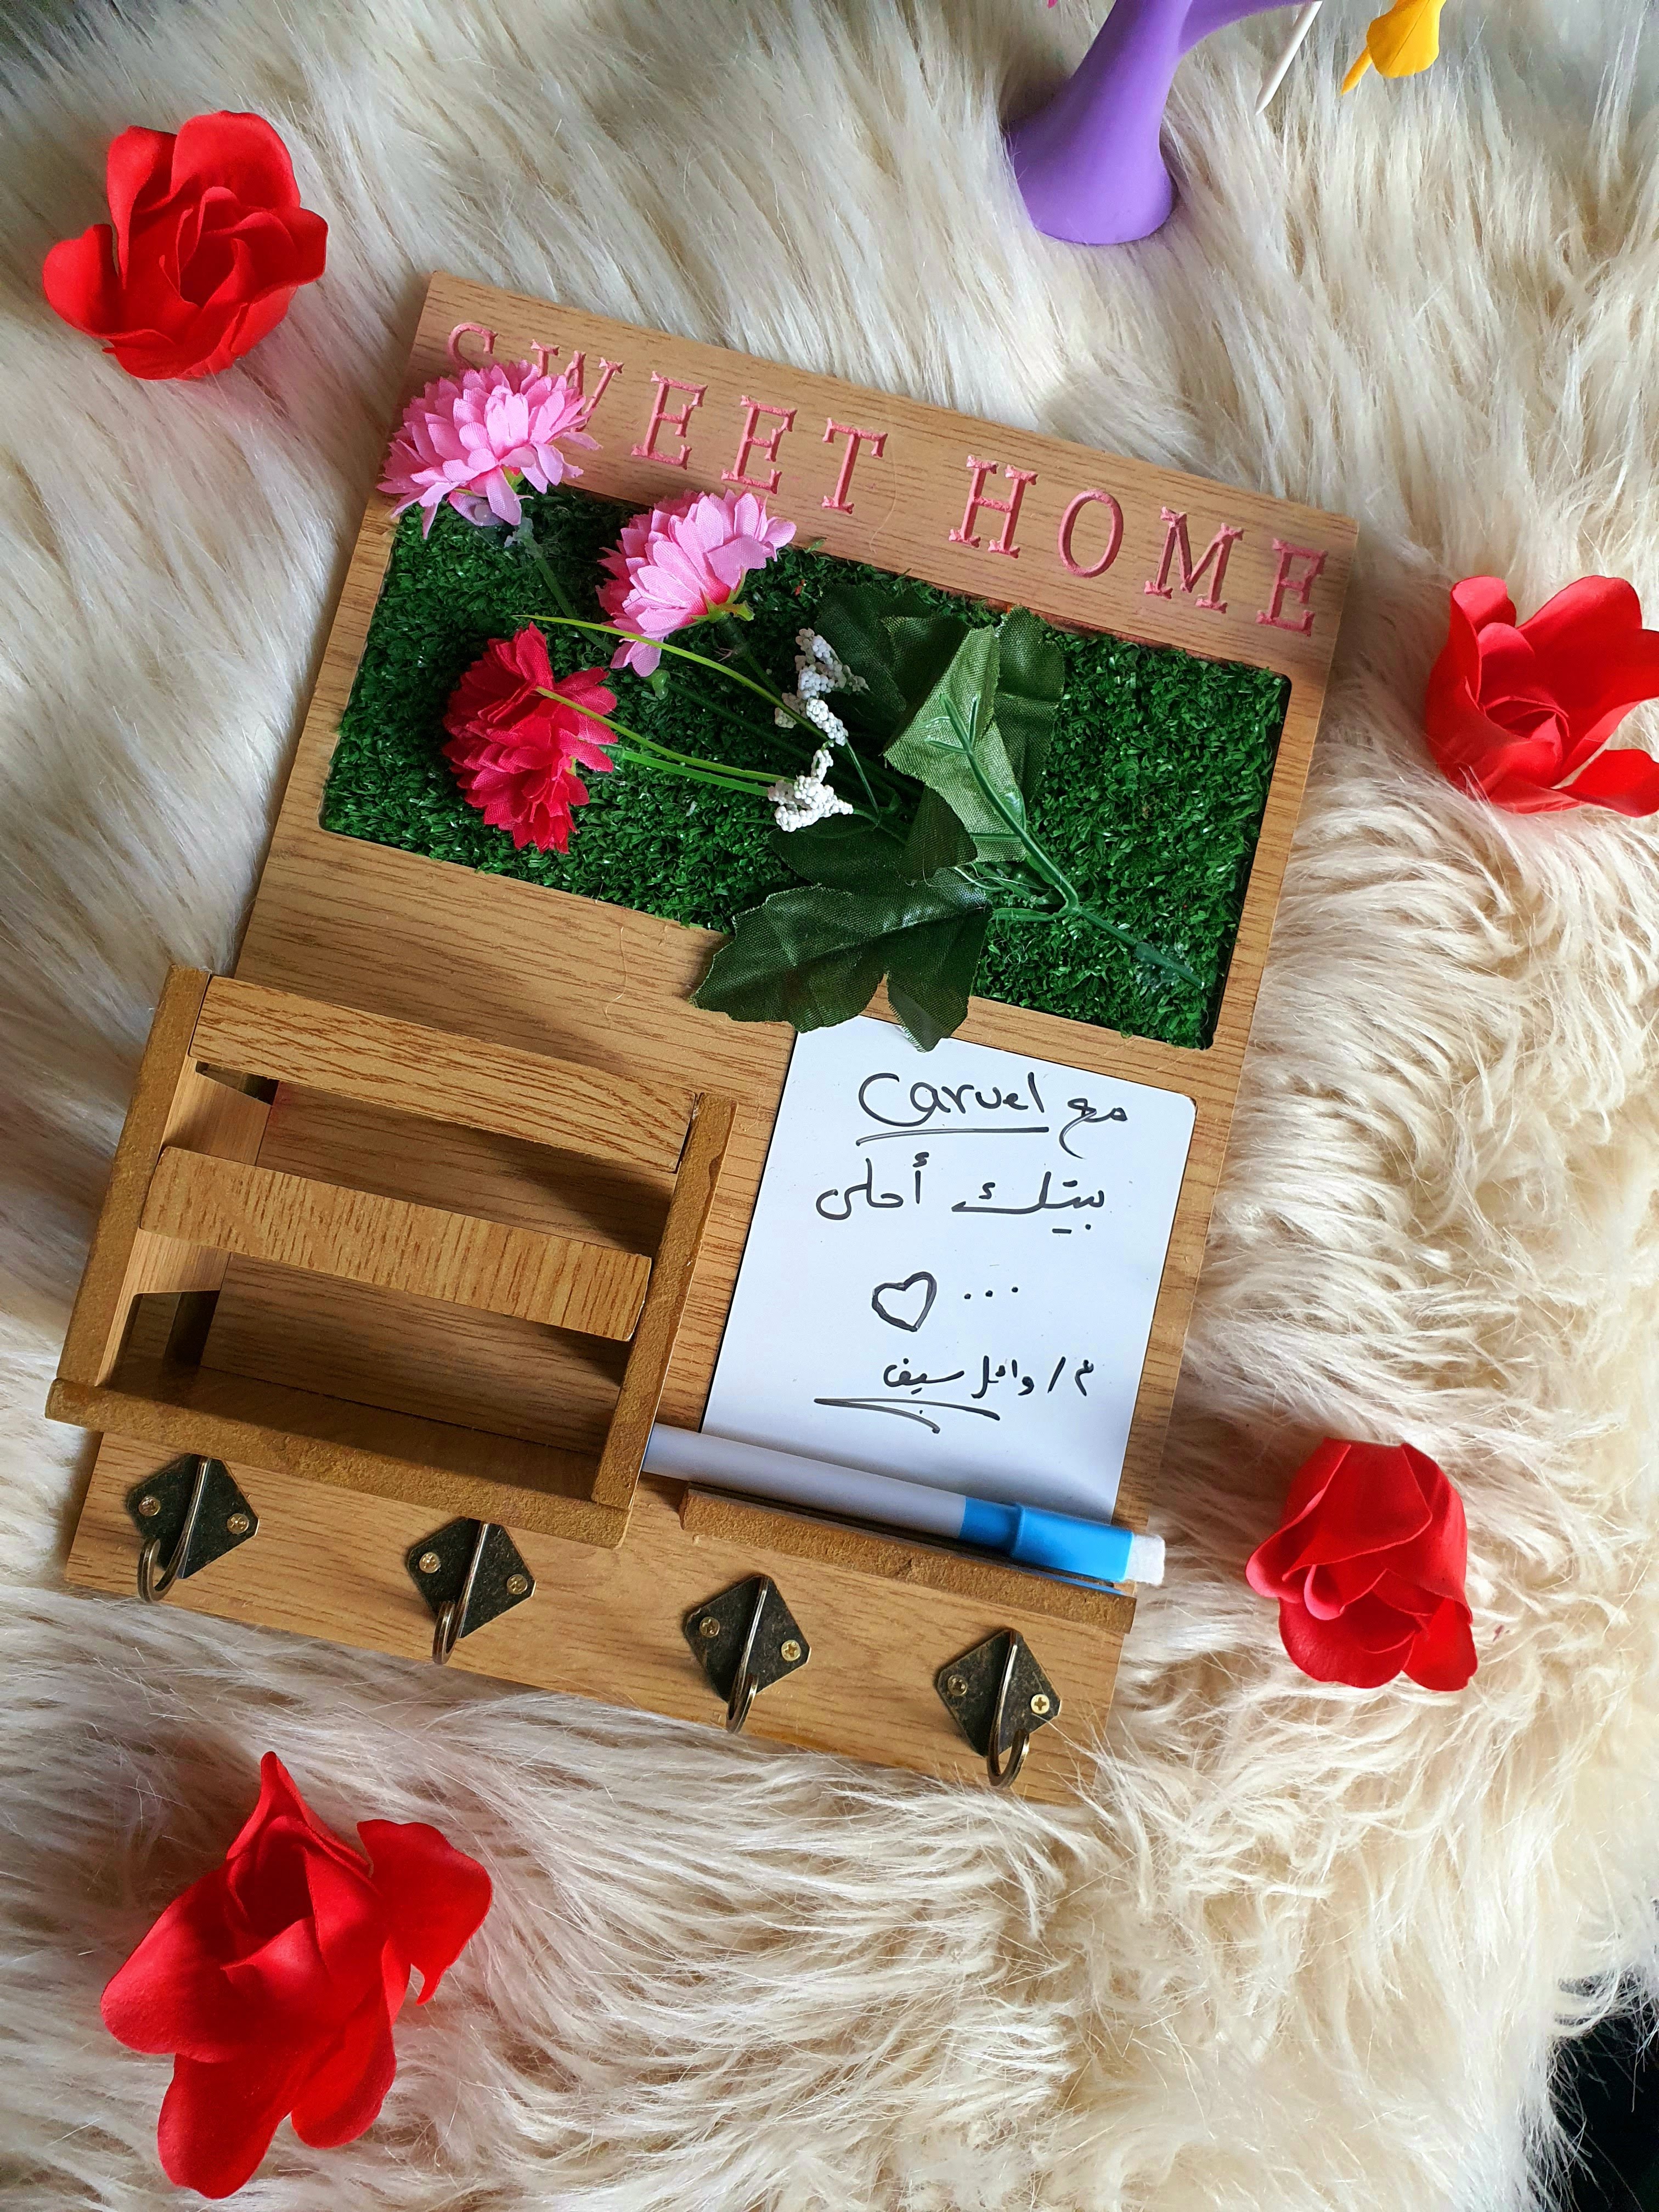 SWEET HOME
مع Carvel
بيتك أحلى
... ♡
م/ وائل سيف